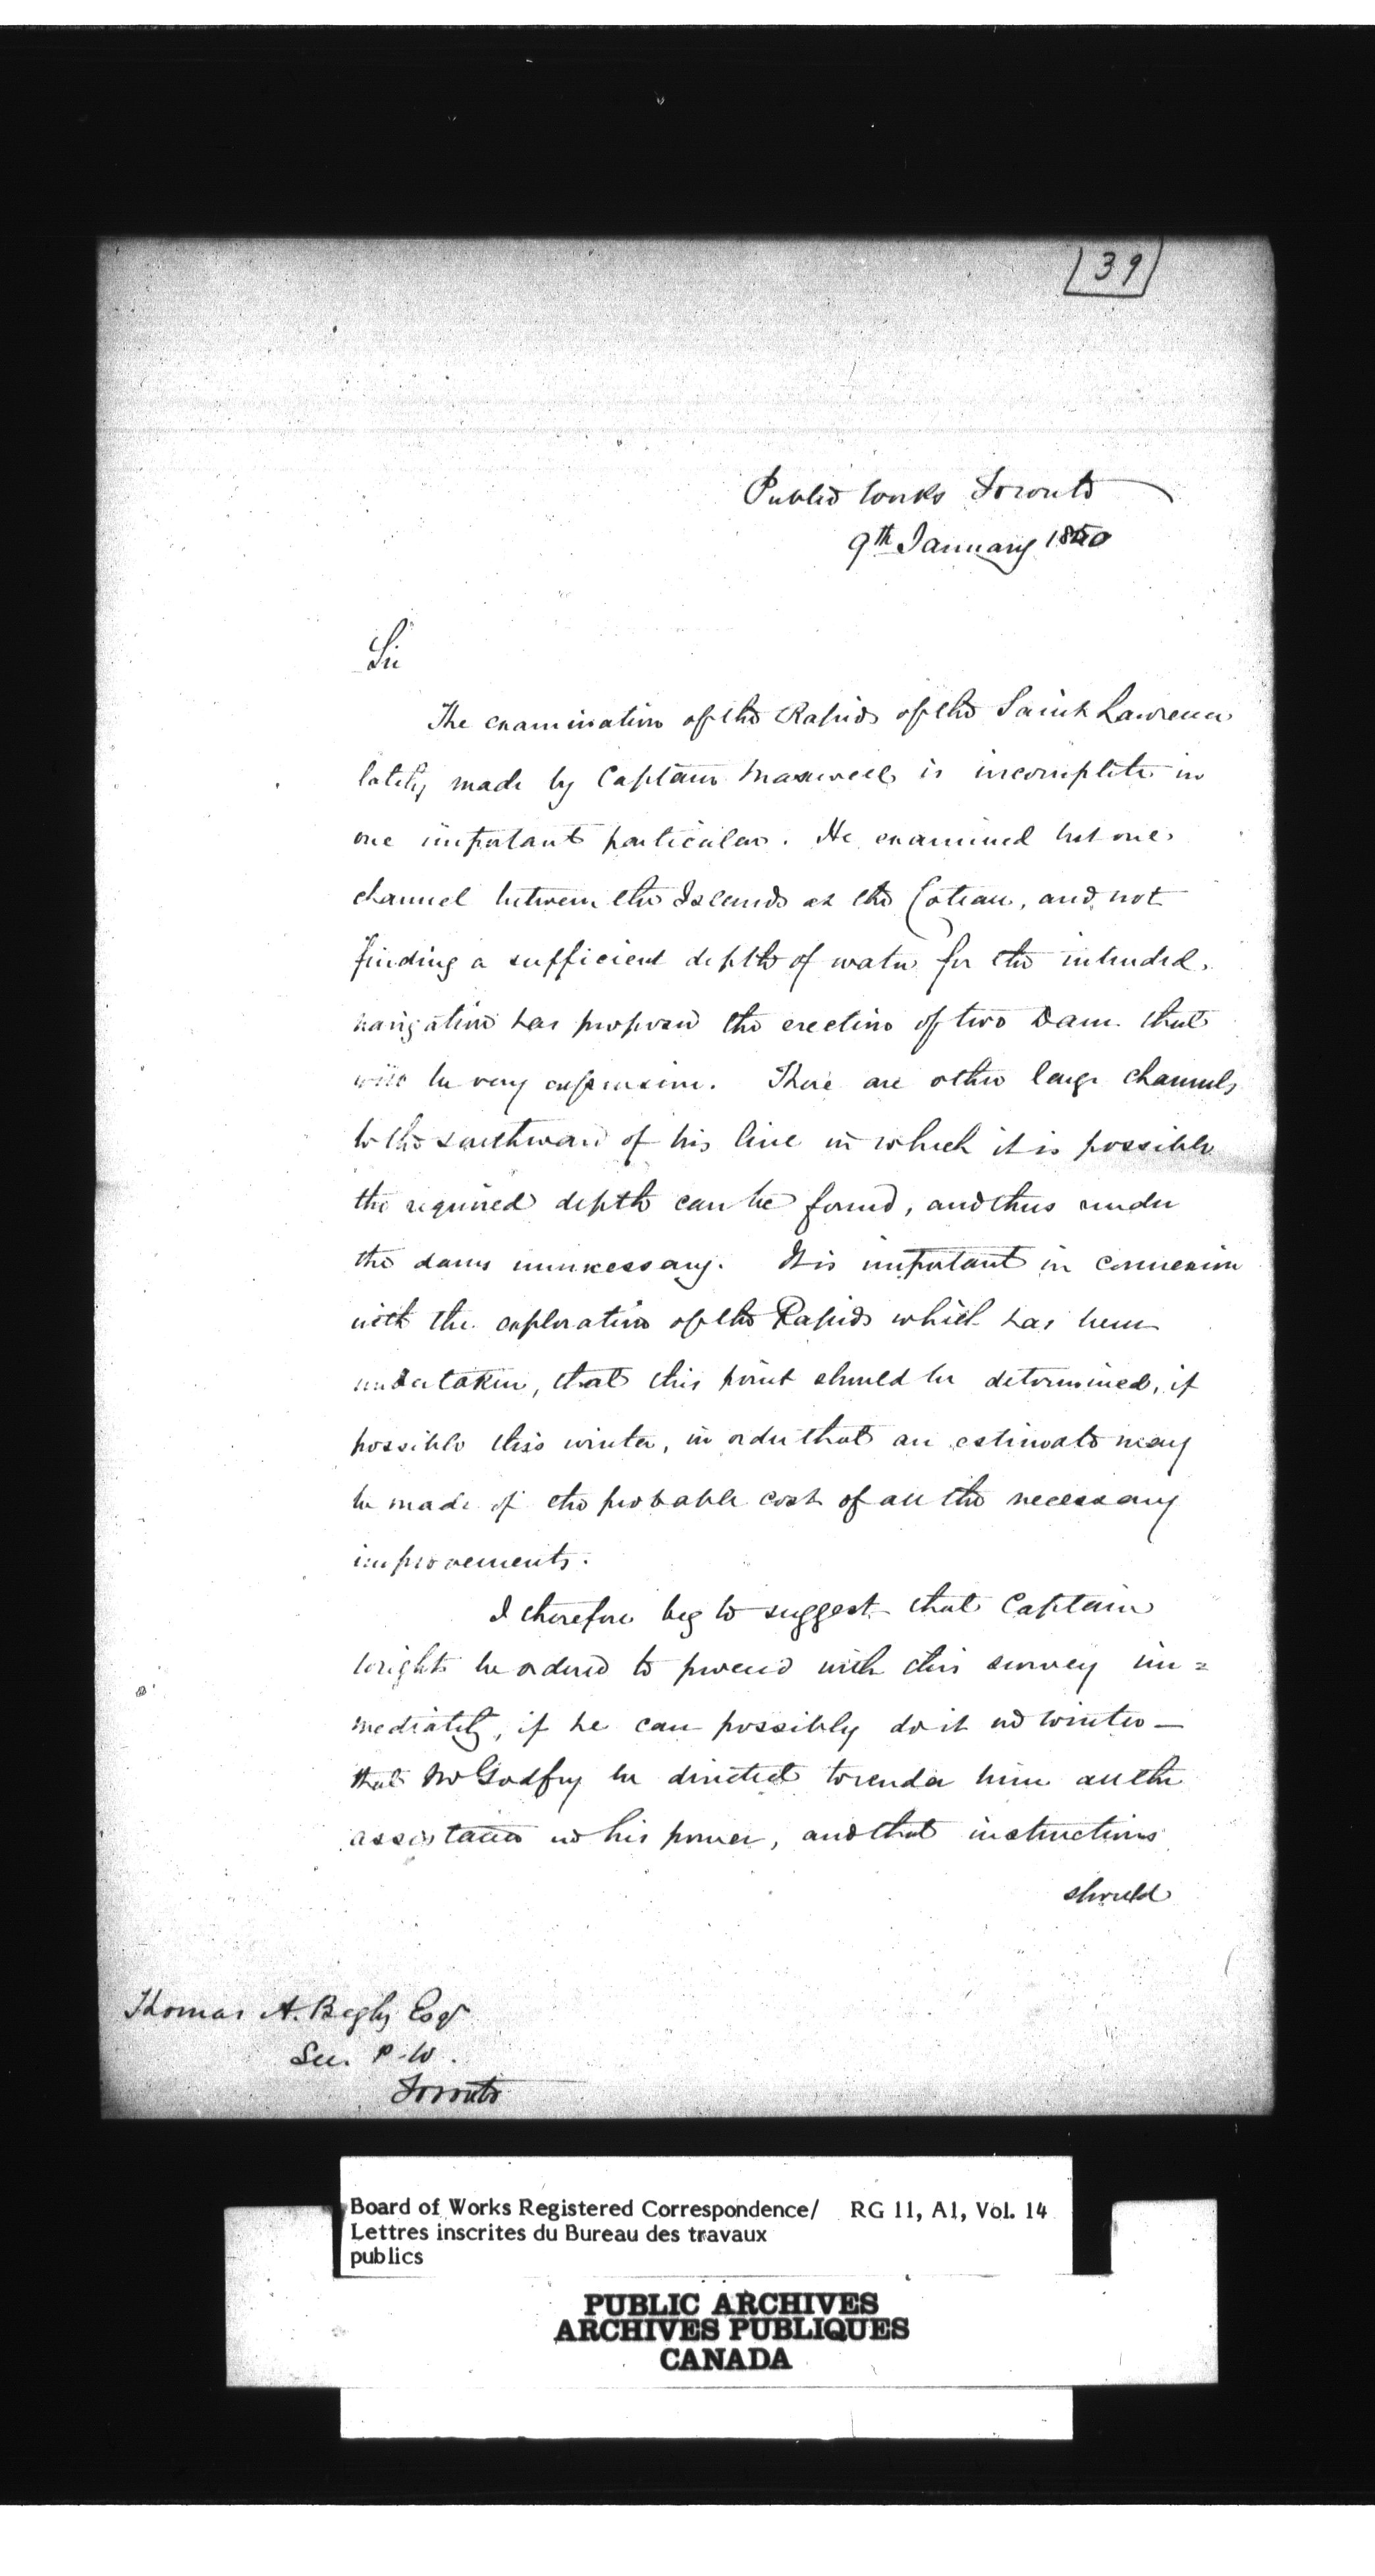 39
Public Works Toronto
9th January 1850
Sir
The examination of the Rapids of the Saint Lawrence
lately made by Captain Maxwell is incomplete in
one important particular. He examined but one
channel between the Islands at the Coteau, and not
finding a sufficient depth of water for the intended
navigation has proposed the erection of two Dams that
will be very expensive. There are other large channels
to the southward of his line in which it is possible
the required depth can be found, and thus render
the dams unnecessary. It is important in connexion
with the exploration of the Rapids which has been
undertaken, that this point should be determined, if
possible this winter, in order that an estimate may
be made of the probable cost of all the necessary
improvements.
I therefore beg to suggest that Captain
Wright be ordered to proceed with this survey im=
mediately, if he can possibly do it in winter —
that Mr Godfry be directed to render him all the
assistance in his power, and that instructions
should
Thomas A. Begly Esqr
Sec. P. W.
Toronto
Board of Works Registered Correspondence/ RG 11, A1, Vol. 14
Lettres inscrites du Bureau des travaux
publics
PUBLIC ARCHIVES
ARCHIVES PUBLIQUES
CANADA